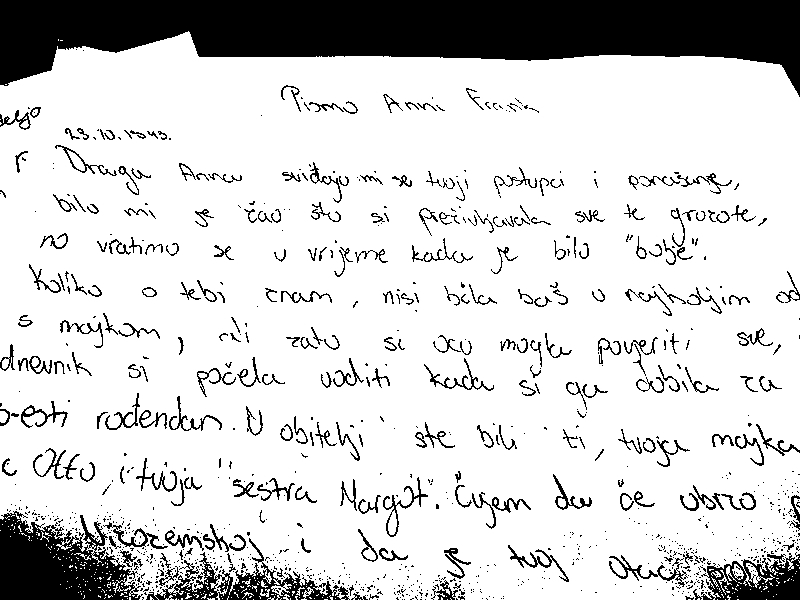 Pismo Anni Frank
23.10.1943.
Draga Anna sviđaju mi se tvoji postupci i ponašanje,
bilo mi je žao što si preživljavala sve te grozote,
no vratimo se u vrijeme kada je bilo "bolje".
Koliko o tebi znam, nisi bila baš u najboljim od
s majkom, ali zato si ocu mogla povjeriti sve,
dnevnik si počela voditi kada si ga dobila za
rođendan. U obitelji ste bili ti, tvoja majka
Otto, i tvoja "sestra Margot". Čujem da će ubrzo
Nizozemskoj i da je tvoj otac